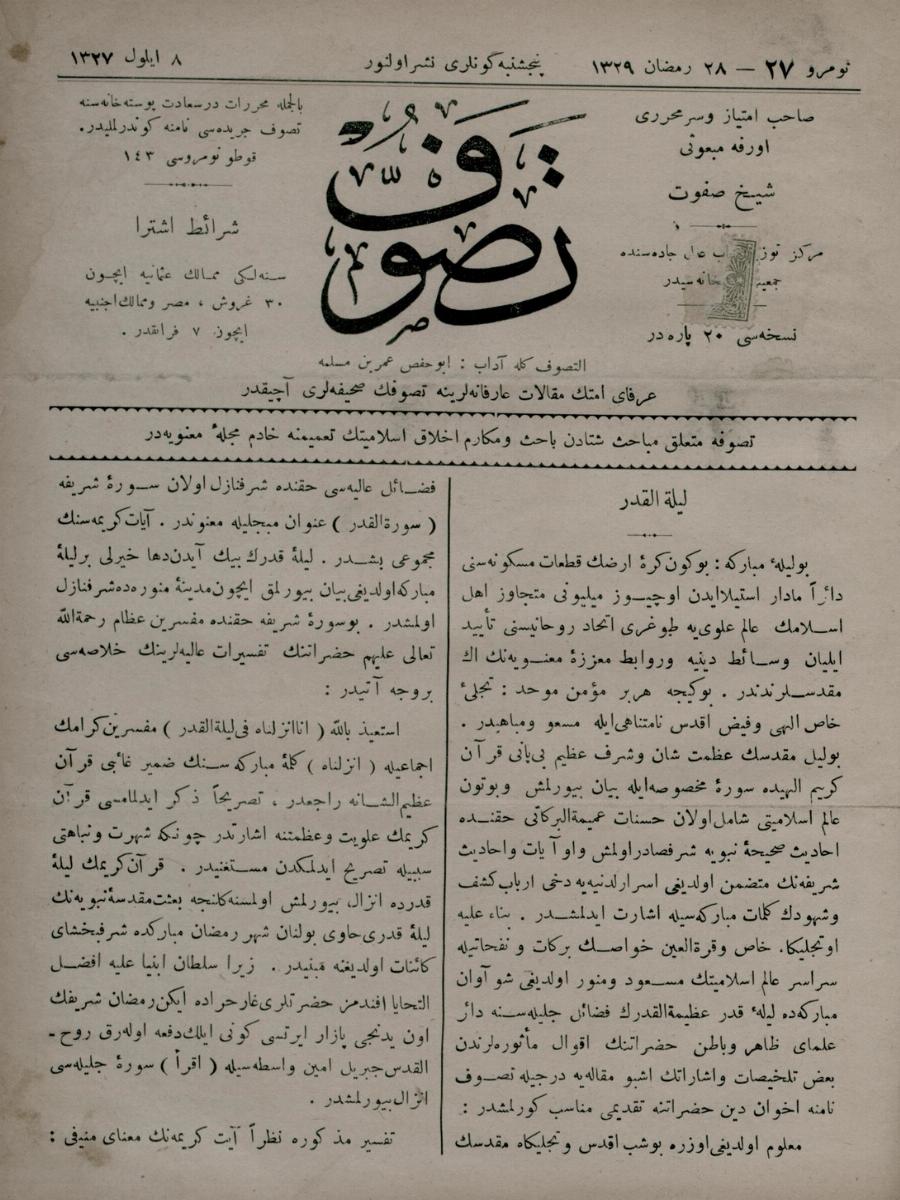 نومرو ٢٧ — ٢٨ رمضان ١٣٢٩
پنجشنبه كونلرى نشر اولنور
٨ ايلول ١٣٢٧
صاحب امتياز وسرمحررى
اورفه مبعوثى
شيخ صفوت
مركز توز
جاده سنده
جمعيت
خانه سيدر
نسخه سى ٢٠ پاره در
تصوف
بالجمله محررات درسعادت پوسته خانه سنه
تصوف جريده سى نامنه كوندرلمليدر.
قوطو نومروسى ١٤٣
شرائط اشترا
سنه لكى ممالك عثمانيه ايچون
٣٠ غروش ، مصر وممالك اجنبيه
ايچون ٧ فرانقدر .
التصوف كله آداب : ابو حفص عمر بن مسلمه
عرفاى امتك مقالات عارفانه لرينه تصوفك صحيفه لرى آچيقدر
تصوفه متعلق مباحث شتادن باحث ومكارم اخلاق اسلاميتك تعميمنه خادم مجلهٔ معنويه در
ليلة القدر
بوليلهٔ مباركه : بوكون كرهٔ ارضك قطعات مسكونه سنى
دائراً مادار استيلا ايدن اوچيوز ميليونى متجاوز اهل
اسلامك عالم علوى يه طوغرى اتحاد روحانيسنى تأييد
ايليان وسائط دينيه وروابط معززهٔ معنويه نك اك
مقدسلرندندر . بوكيجه هربر مؤمن موحد : تجلىٔ
خاص الهى وفيض اقدس نامتناهى ايله مسعو ومباهيدر .
بوليل مقدسك عظمت شان وشرف عظيم بى پانى قرآن
كريم الهيده سورهٔ مخصوصه ايله بيان بيورلمش وبوتون
عالم اسلاميتى شامل اولان حسنات عميمة البركاتى حقنده
احاديث صحيحهٔ نبويه شرفصادر اولمش واو آيات واحاديث
شريفه نك متضمن اولديغى اسرار لدنيه يه دخى ارباب كشف
وشهودك كلمات مباركه سيله اشارت ايدلمشدر . بناء عليه
اوتجليكاه خاص وقرة العين خواصك بركات و نفحاتيله
سراسر عالم اسلاميتك مسعود ومنور اولديغى شو آوان
مباركه ده ليلهٔ قدر عظيمة القدرك فضائل جليله سنه دائر
علماى ظاهر وباطن حضراتنك اقوال مأثوره لرندن
بعض تلخيصات واشاراتك اشبو مقاله يه درجيله تصوف
نامنه اخوان دين حضراتنه تقديمى مناسب كورلمشدر :
معلوم اولديغى اوزره بوشب اقدس وتجليكاه مقدسك
فضائل عاليه سى حقنده شرفنازل اولان سورهٔ شريفه
( سورة القدر ) عنوان مبجليله معنوندر . آيات كريمه سنك
مجموعى بشدر . ليلهٔ قدرك بيك آيدن دها خيرلى برليلهٔ
مباركه اولديغى بيان بيورلمق ايچون مدينهٔ منوره ده شرفنازل
اولمشدر . بو سورهٔ شريفه حقنده مفسرين عظام رحمة الله
تعالى عليهم حضراتنك تفسيرات عاليه لرينك خلاصه سى
بروجه آتيدر :
استعيذ بالله ( انا انزلناه فى ليلة القدر ) مفسرين كرامك
اجماعيله ( انزلناه ) كلمهٔ مباركه سنك ضمير غائبى قرآن
عظيم الشانه راجعدر ، تصريحاً ذكر ايدلمامسى قرآن
كريمك علويت وعظمتنه اشارتدر چونكه شهرت ونباهتى
سببيله تصريح ايدلمكدن مستغنيدر . قرآن كريمك ليلهٔ
قدرده انزال بيورلمش اولمسنه كلنجه بعثت مقدسهٔ نبويه نك
ليلهٔ قدرى حاوى بولنان شهر رمضان مباركده شرفبخشاى
كائنات اولديغنه مبنيدر . زيرا سلطان انبيا عليه افضل
التحايا افندمز حضرتلرى غار حراده ايكن رمضان شريفك
اون يدنجى پازار ايرتسى كونى ايلك دفعه اوله رق روح ـ
القدس جبريل امين واسطه سيله ( اقرأ ) سورهٔ جليله سى
انزال بيورلمشدر .
تفسير مذكوره نظراً آيت كريمه نك معناى منيفى :